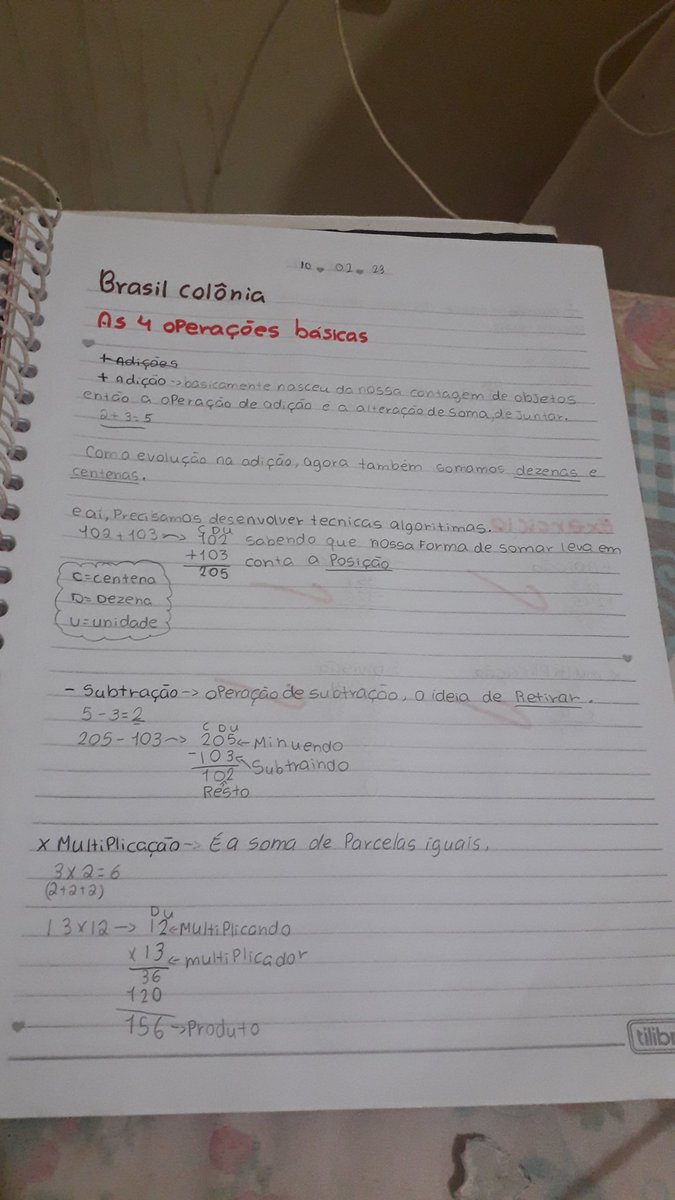 10 . 02 . 23
Brasil colônia
As 4 operações básicas
+ Adições
+ adição -> basicamente nasceu da nossa contagem de objetos
então a operação de adição e a alteração de soma, de juntar.
2+3=5
Com a evolução na adição, agora também somamos dezenas e
centenas.
e aí, Precisamos desenvolver tecnicas algoritimas.
C D U
102+103 -> 102 sabendo que nossa forma de somar leva em
+103 conta a Posição
205
C=centena
D=Dezena
U=unidade
- Subtração -> operação de subtração, a ideia de Retirar.
5-3=2
C D U
205-103 -> 205 <- Minuendo
-103 <- Subtraindo
102
Resto
x Multiplicação -> É a soma de Parcelas iguais.
3x2=6
(2+2+2)
D U
13x12 -> 12 <- Multiplicando
x13 <- multiplicador
36
120
156 -> Produto